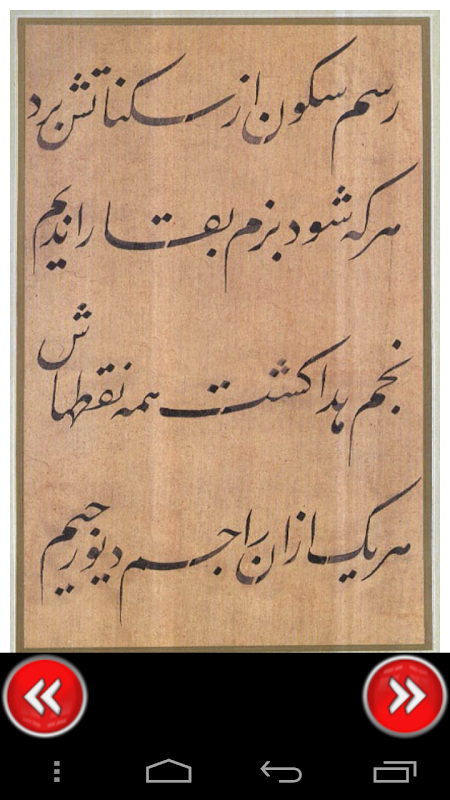 رسم سکون از سکناتش برد
هرکه شود بزم بقا را ندیم
نجم هدا کشت همه نقطهاش
هر یک ازان راجم دیو رجیم